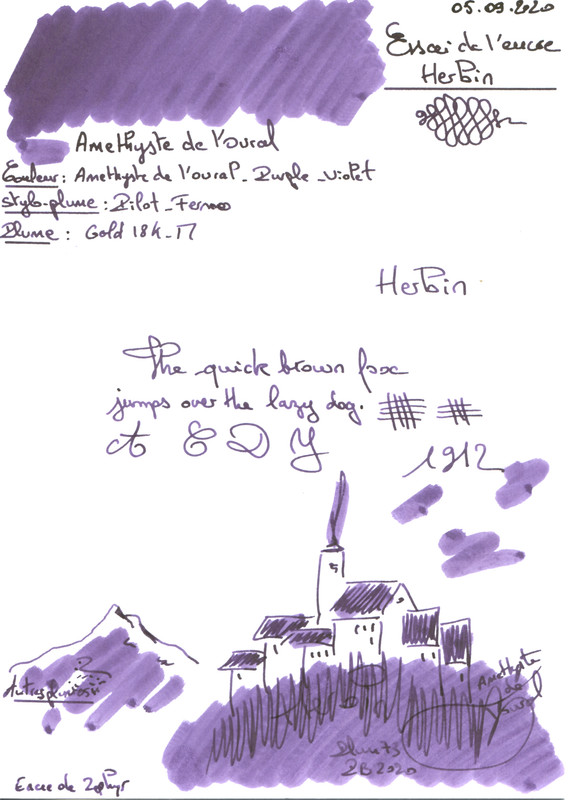 05.09.2020
Essai de l'encre
Herbin
Amethyste de l'Oural
Couleur: Amethyste de l'oural_Purple_violet
stylo-plume: Pilot_Fermo
Plume: Gold 18k_M
Herbin
The quick brown fox
jumps over the lazy dog.
A E D Y
1912
Amethyste
de
l'oural
Plume73
2B2020
Encre de Zephyr